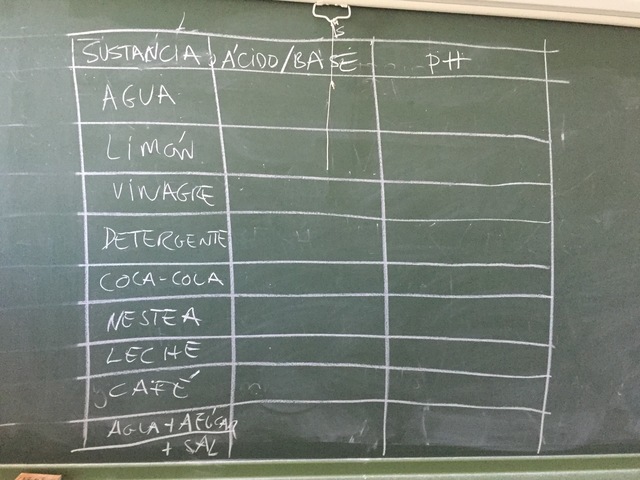 SUSTANCIA ÁCIDO/BASE PH
AGUA
LIMÓN
VINAGRE
DETERGENTE
COCA-COLA
NESTEA
LECHE
CAFÉ
AGUA + AZÚCAR
+ SAL